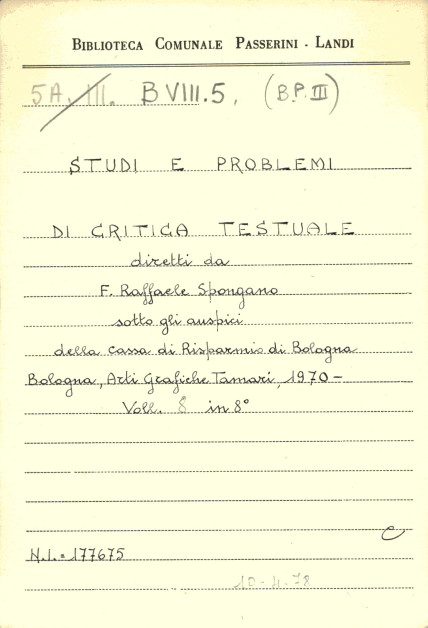 BIBLIOTECA COMUNALE PASSERINI - LANDI
5A. III. B VIII.5. (B.P. III)
STUDI E PROBLEMI
DI CRITICA TESTUALE
diretti da
F. Raffaele Spongano
sotto gli auspici
della cassa di Risparmio di Bologna
Bologna, Arti Grafiche Tamari, 1970-
Voll. 8 in 8°
C
N.I. = 177675
10-4-78